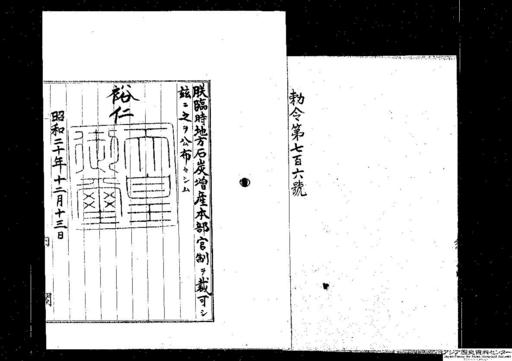 勅令第七百六號
朕臨時地方石炭増産本部官制ヲ裁可シ
玆ニ之ヲ公布セシム
裕仁
天皇
御璽
昭和二十年十二月十三日
内閣
アジア歴史資料センター